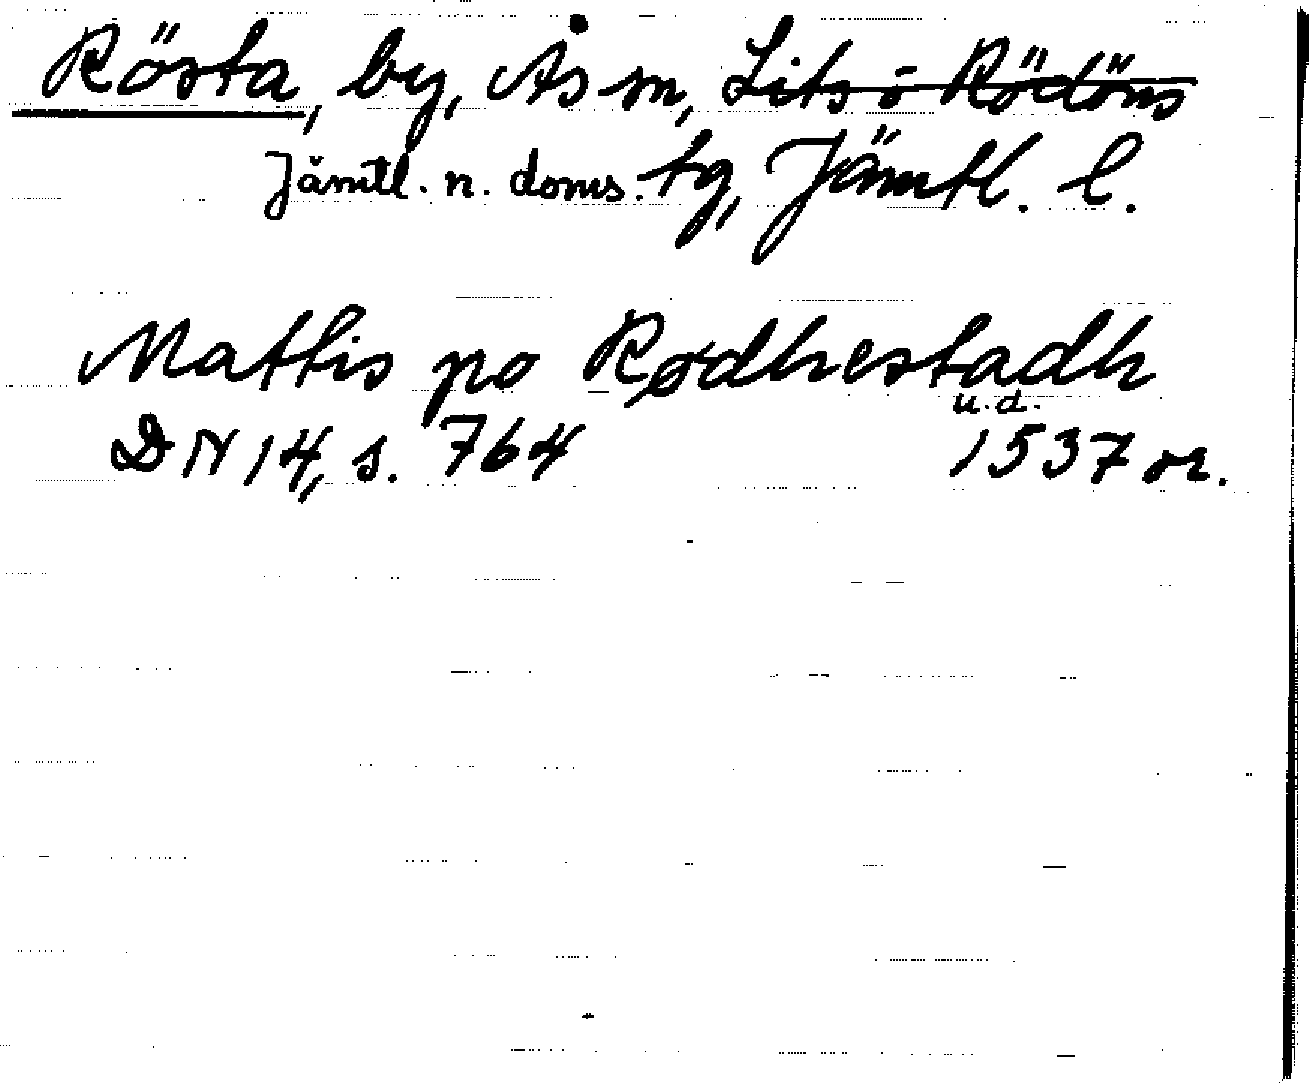 Rösta, by, Ås sn, Lits o Rödöns
Jämtl. n. doms. tg, Jämtl. l.
Mattis po Rødhestadh
u.d.
DN 14, s. 764 1537 or.